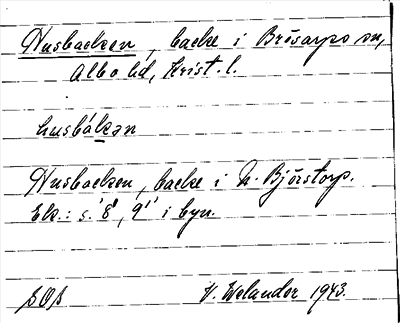 Husbacken, backe i Brösarps sn,
Albo hd, Krist. l.
husbákən
Husbacken, backe i N. Björstorp.
Ek.: s. 8", 9" i byn.
SOS V. Welander 1943.